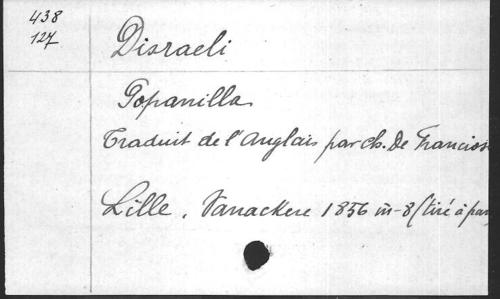 438
127
Disraeli
Popanilla
Traduit de l'Anglais par Ch. De Francios
Lille, Vanackere 1856 in-8 (tiré à par